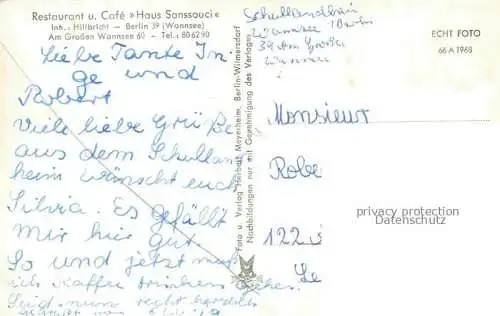 Restaurant u. Café »Haus Sanssouci«
Inh.: Hillbricht — Berlin 39 (Wannsee)
Am Großen Wannsee 60 — Tel.: 80 62 90
Liebe Tante In-
ge und
Robert
Viele liebe Grüße
aus dem Schullan
heim wünscht euch
Silvia. Es gefällt
mir hier gut.
So und jetzt muß
ich Kaffee trinken gehen.
Seid nun recht herzlich
Foto u. Verlag Herbert Meyerheim, Berlin-Wilmersdorf
Nachbildungen nur mit Genehmigung des Verlages
Schullandheim
Wannsee 1 Berlin
39 Am Großen
Wannsee
ECHT FOTO
66 A 1968
Monsieur
Robe
122
Le
privacy protection